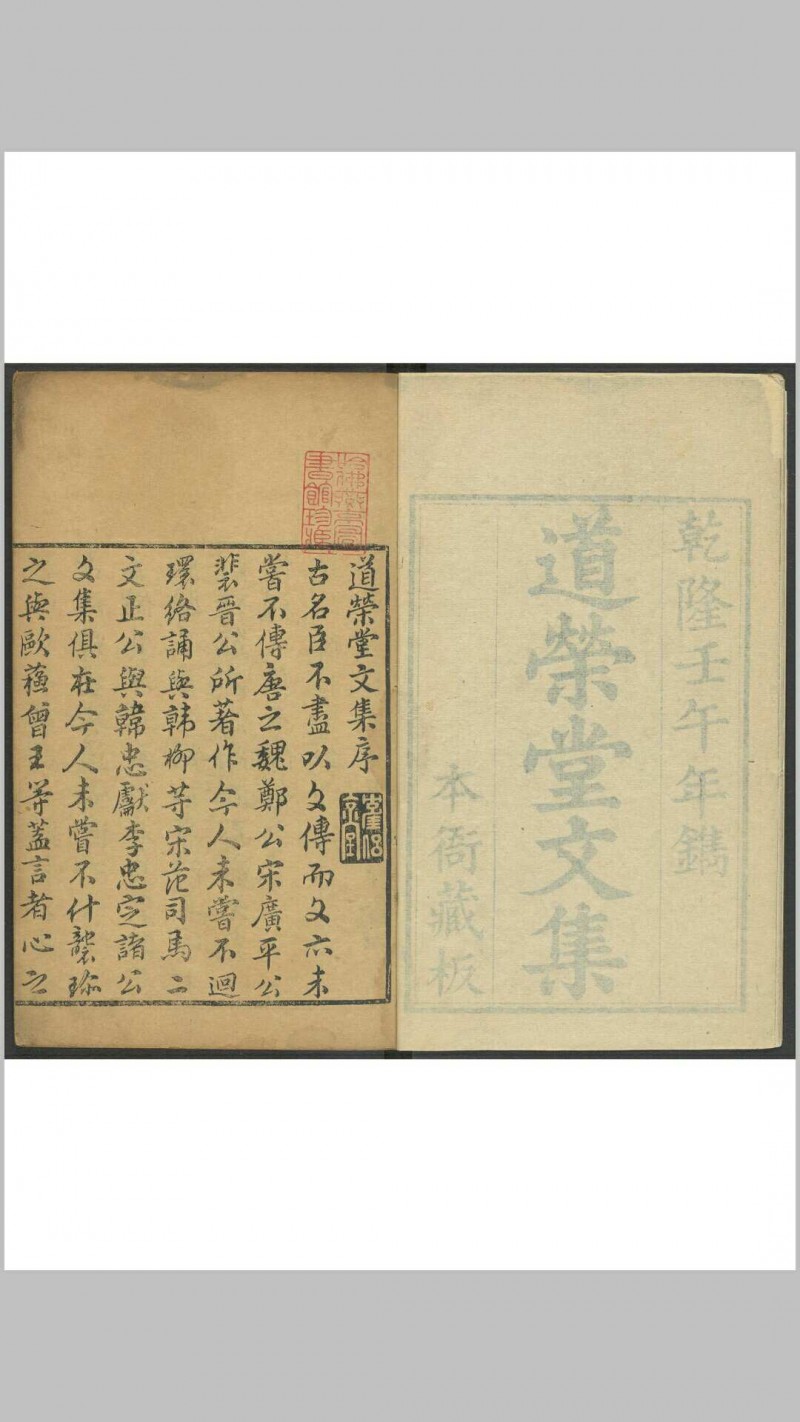 乾隆壬午年鐫
道榮堂文集
本衙藏板
道榮堂文集序
古名臣不盡以文傳而文亦未
嘗不傳唐之魏鄭公宋廣平公
裴晉公所著作今人未嘗不迴
環絡誦與韓柳等宋范司馬二
文正公與韓忠獻李忠定諸公
文集俱在今人未嘗不什襲珍
之與歐蘓曾王等蓋言者心之